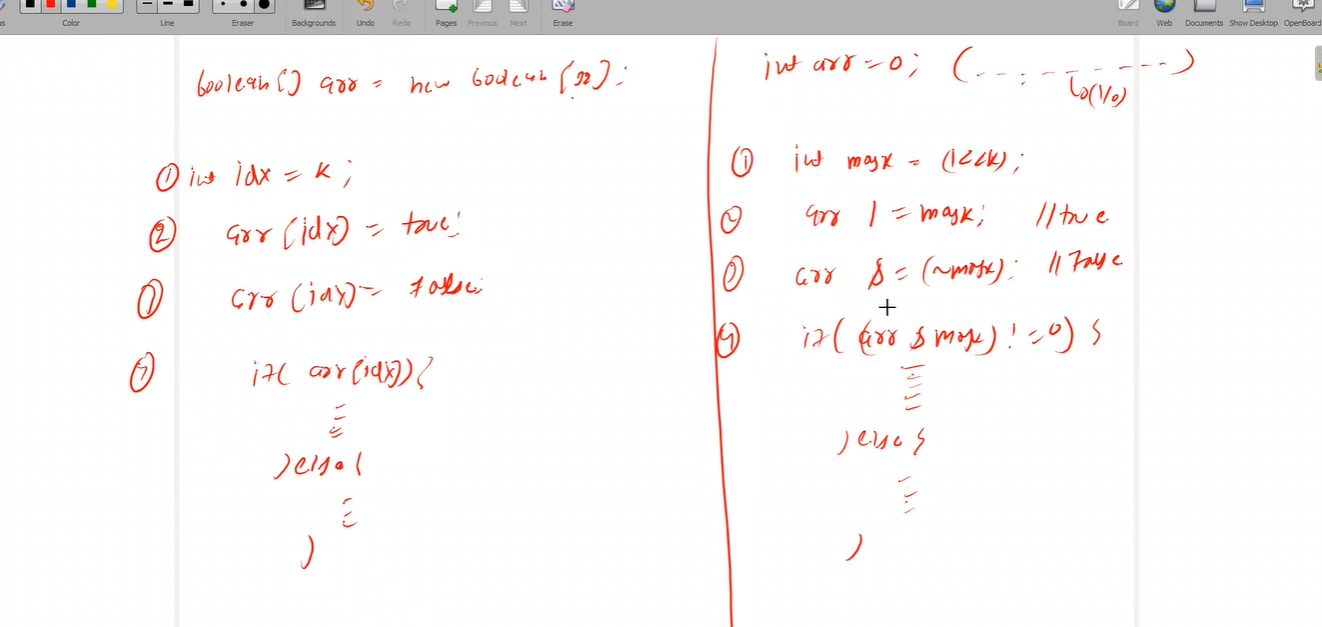 Color
Line
Eraser
Backgrounds
Undo
Redo
Pages
Previous
Next
Erase
Board
Web
Documents
Show Desktop
OpenBoard
boolean[] arr = new boolean[32];
① int idx = k;
② arr[idx] = true;
③ arr[idx] = false;
④ if( arr[idx]){
}else{
}
int arr = 0; (- - - - - - - -)
0(1/0)
① int mask = (1<<k);
② arr |= mask; // true
③ arr &= (~mask); // False
④ if( (arr & mask) != 0) {
}else{
}